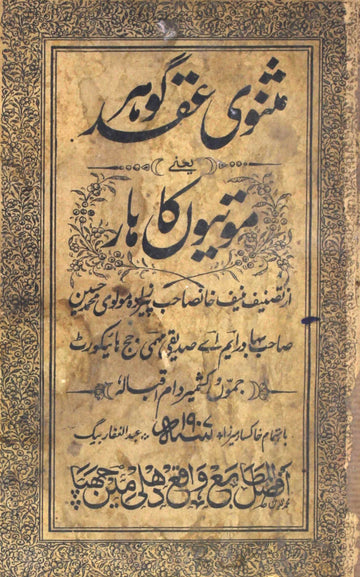 مثنوی عقد گوہر
یعنی
موتیوں کا ہار
از تصنیف منیف خانصاحب پیرزادہ مولوی محمد حسین
صاحب بہادر ایم اے صدیقی مہمی جج ہائیکورٹ
جموں و کشمیر دام اقبالہٗ
باہتمام خاکسار میرزا عبد الغفار بیگ
افضل المطابع واقع دہلی میں چھپا